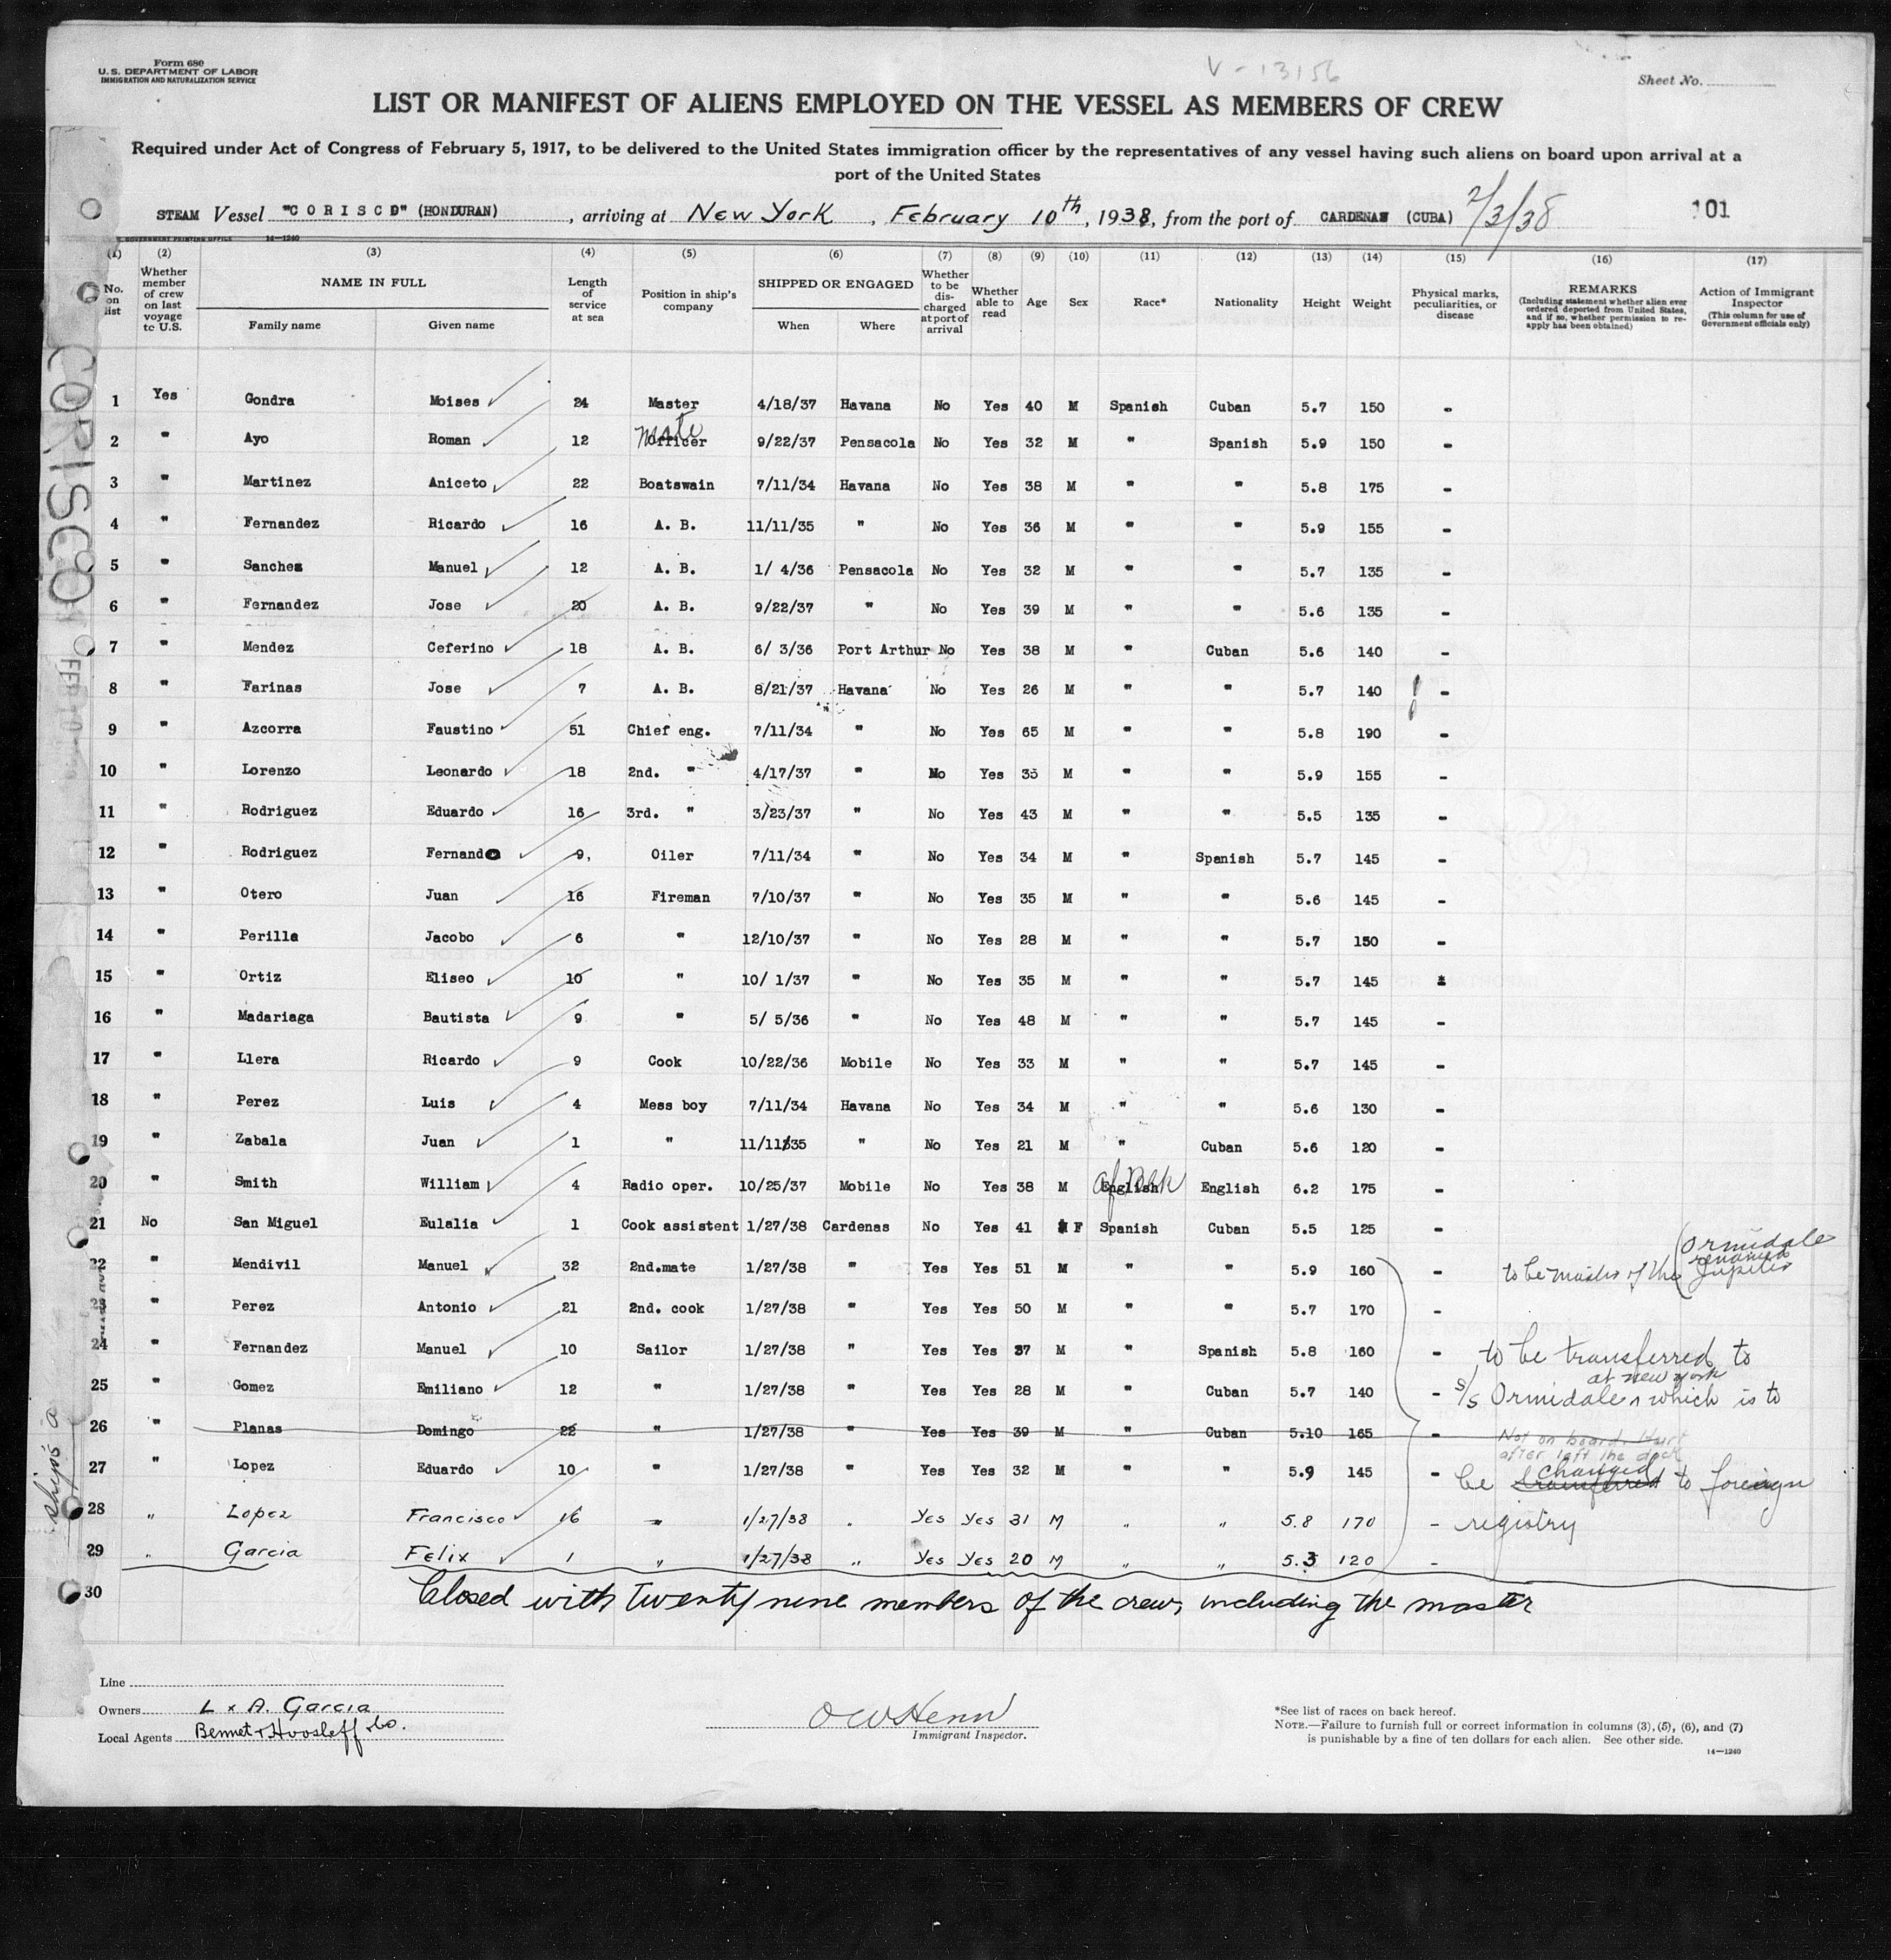 Form 680
U. S. DEPARTMENT OF LABOR
IMMIGRATION AND NATURALIZATION SERVICE
V - 13156
Sheet No.
LIST OR MANIFEST OF ALIENS EMPLOYED ON THE VESSEL AS MEMBERS OF CREW
Required under Act of Congress of February 5, 1917, to be delivered to the United States immigration officer by the representatives of any vessel having such aliens on board upon arrival at a
port of the United States
STEAM Vessel "CORISCO" (HONDURAN), arriving at New York, February 10th, 1938, from the port of CARDENAS (CUBA) 2/3/38 101
GOVERNMENT PRINTING OFFICE 14—1240
(1) No. on list
(2) Whether member of crew on last voyage to U.S.
(3) NAME IN FULL Family name Given name
(4) Length of service at sea
(5) Position in ship's company
(6) SHIPPED OR ENGAGED When Where
(7) Whether to be discharged at port of arrival
(8) Whether able to read
(9) Age
(10) Sex
(11) Race*
(12) Nationality
(13) Height
(14) Weight
(15) Physical marks, peculiarities, or disease
(16) REMARKS (Including statement whether alien ever ordered deported from United States, and if so, whether permission to reapply has been obtained)
(17) Action of Immigrant Inspector (This column for use of Government officials only)
CORISCO
1 Yes Gondra Moises 24 Master 4/18/37 Havana No Yes 40 M Spanish Cuban 5.7 150 -
2 " Ayo Roman 12 Officer mate 9/22/37 Pensacola No Yes 32 M " Spanish 5.9 150 -
3 " Martinez Aniceto 22 Boatswain 7/11/34 Havana No Yes 38 M " " 5.8 175 -
4 " Fernandez Ricardo 16 A. B. 11/11/35 " No Yes 36 M " " 5.9 155 -
5 " Sanchez Manuel 12 A. B. 1/ 4/36 Pensacola No Yes 32 M " " 5.7 135 -
6 " Fernandez Jose 20 A. B. 9/22/37 " No Yes 39 M " " 5.6 135 -
7 " Mendez Ceferino 18 A. B. 6/ 3/36 Port Arthur No Yes 38 M " Cuban 5.6 140 -
8 " Farinas Jose 7 A. B. 8/21/37 Havana No Yes 26 M " " 5.7 140 -
9 " Azcorra Faustino 51 Chief eng. 7/11/34 " No Yes 65 M " " 5.8 190 -
10 " Lorenzo Leonardo 18 2nd. " 4/17/37 " No Yes 35 M " " 5.9 155 -
11 " Rodriguez Eduardo 16 3rd. " 3/23/37 " No Yes 43 M " " 5.5 135 -
12 " Rodriguez Fernando 9, Oiler 7/11/34 " No Yes 34 M " Spanish 5.7 145 -
13 " Otero Juan 16 Fireman 7/10/37 " No Yes 35 M " " 5.6 145 -
14 " Perilla Jacobo 6 " 12/10/37 " No Yes 28 M " " 5.7 150 -
15 " Ortiz Eliseo 10 " 10/ 1/37 " No Yes 35 M " " 5.7 145
16 " Madariaga Bautista 9 " 5/ 5/36 " No Yes 48 M " " 5.7 145 -
17 " Llera Ricardo 9 Cook 10/22/36 Mobile No Yes 33 M " " 5.7 145 -
18 " Perez Luis 4 Mess boy 7/11/34 Havana No Yes 34 M " " 5.6 130 -
19 " Zabala Juan 1 " 11/11/35 " No Yes 21 M " Cuban 5.6 120 -
20 " Smith William 4 Radio oper. 10/25/37 Mobile No Yes 38 M English af Blk English 6.2 175 -
21 No San Miguel Eulalia 1 Cook assistent 1/27/38 Cardenas No Yes 41 F Spanish Cuban 5.5 125 -
22 " Mendivil Manuel 32 2nd.mate 1/27/38 " Yes Yes 51 M " " 5.9 160 - to be master of the (Ormidale renamed Jupiter
23 " Perez Antonio 21 2nd. cook 1/27/38 " Yes Yes 50 M " " 5.7 170 -
24 " Fernandez Manuel 10 Sailor 1/27/38 " Yes Yes 37 M " Spanish 5.8 160 - to be transferred to
25 " Gomez Emiliano 12 " 1/27/38 " Yes Yes 28 M " Cuban 5.7 140 - s/s Ormidale at new york which is to
26 " Planas Domingo 22 " 1/27/38 " Yes Yes 39 M " Cuban 5.10 165 - Not on board. Hurt after left the dock
27 " Lopez Eduardo 10 " 1/27/38 " Yes Yes 32 M " " 5.9 145 - be transferred changed to foreign
28 " Lopez Francisco 16 " 1/27/38 " Yes Yes 31 M " " 5.8 170 - registry
29 " Garcia Felix 1 " 1/27/38 " Yes Yes 20 M " " 5.3 120 -
30 Closed with twenty nine members of the crew, including the master
Line
Owners L & A. Garcia
Local Agents Bennet & Hvosleff & Co.
O W Henn
Immigrant Inspector.
*See list of races on back hereof.
NOTE.—Failure to furnish full or correct information in columns (3), (5), (6), and (7)
is punishable by a fine of ten dollars for each alien. See other side.
14—1240